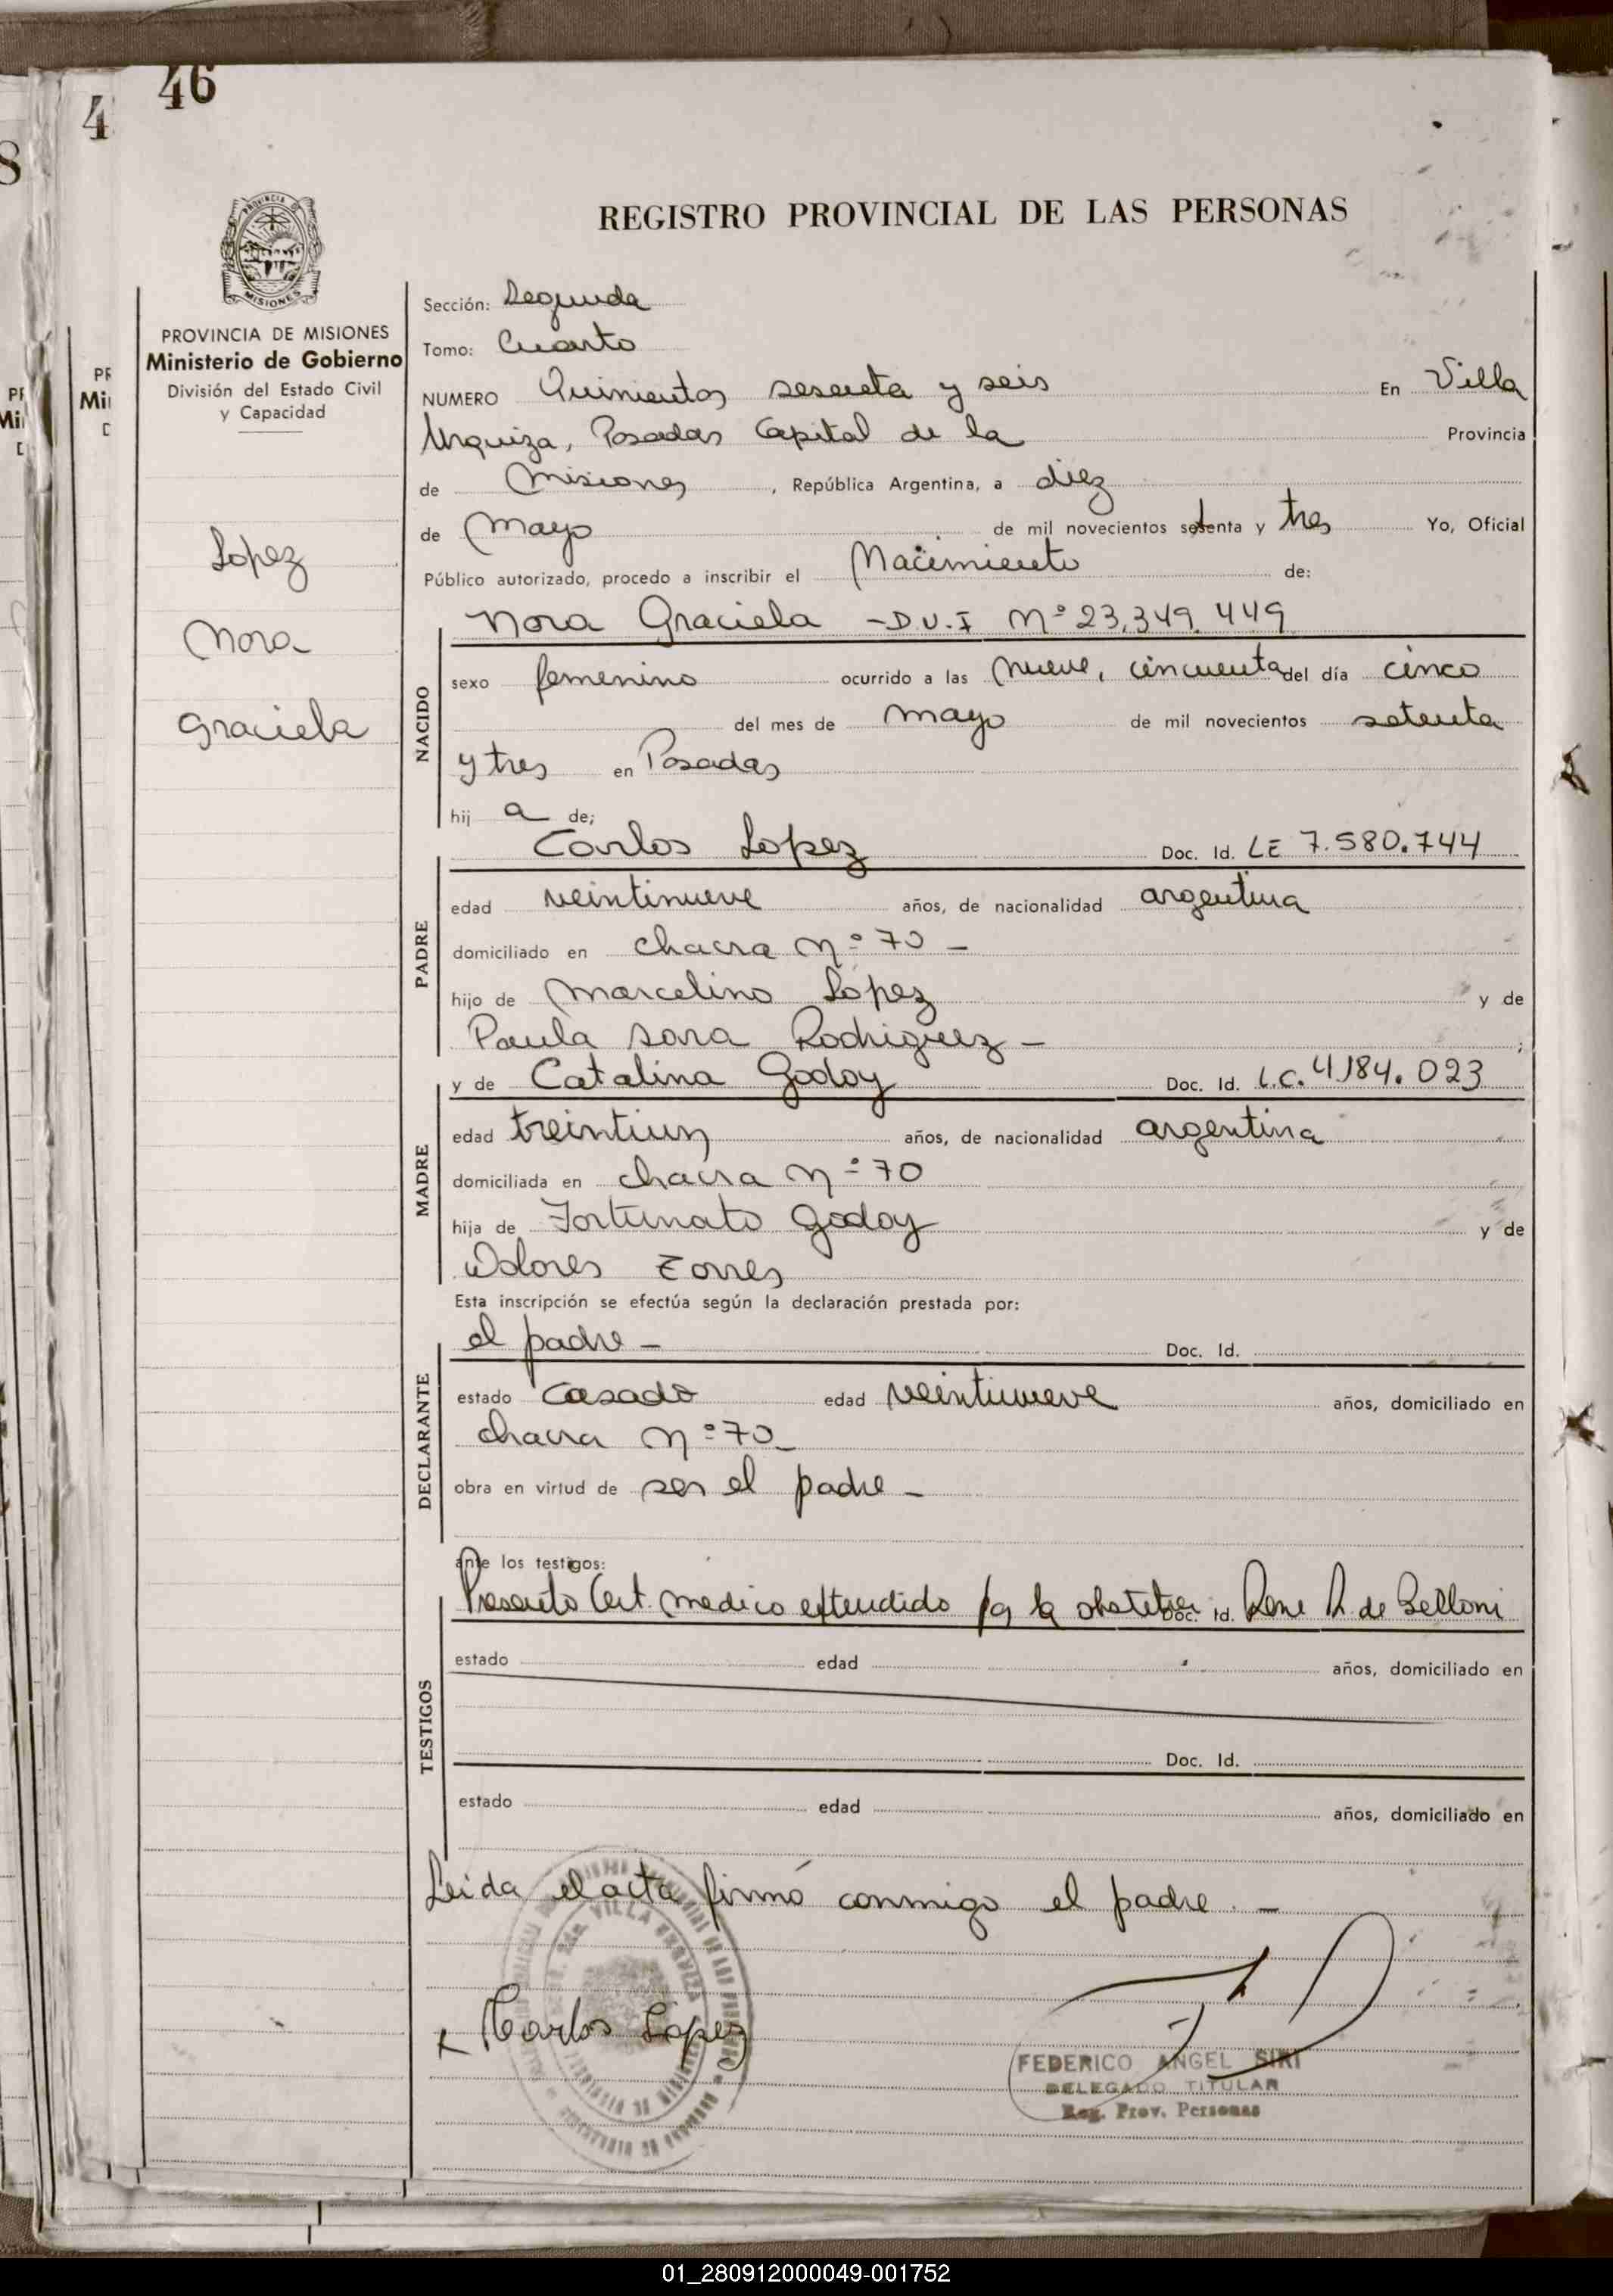 46
4
8
REGISTRO PROVINCIAL DE LAS PERSONAS
PROVINCIA DE
MISIONES
PROVINCIA DE MISIONES
Ministerio de Gobierno
División del Estado Civil
y Capacidad
Lopez
Nora
Graciela
Sección: Segunda
Tomo: Cuarto
NUMERO Quinientos sesenta y seis En Villa
Urquiza, Posadas Capital de la Provincia
de Misiones, República Argentina, a diez
de Mayo de mil novecientos setenta y tres Yo, Oficial
Público autorizado, procedo a inscribir el Nacimiento de:
NACIDO
Nora Graciela - D.U.I Nº 23.349.449
sexo femenino ocurrido a las nueve, cincuenta del día cinco
del mes de mayo de mil novecientos setenta
y tres en Posadas
hij a de;
PADRE
Carlos Lopez Doc. Id. LE 7.580.744
edad veintinueve años, de nacionalidad argentina
domiciliado en chacra nº 70 -
hijo de Marcelino López y de
Paula Sara Rodriguez - ;
MADRE
y de Catalina Godoy Doc. Id. L.C. 4.184.023
edad treintiun años, de nacionalidad argentina
domiciliada en chacra nº 70
hija de Fortunato Godoy y de
Dolores Torres
Esta inscripción se efectúa según la declaración prestada por:
DECLARANTE
el padre - Doc. Id.
estado casado edad veintinueve años, domiciliado en
chacra nº 70 -
obra en virtud de ser el padre -
TESTIGOS
ante los testigos:
Presento Cert. medico extendido por la obstetra Doc. Id. Rene R. de Belloni
estado edad años, domiciliado en
Doc. Id.
estado edad años, domiciliado en
Leida el acta firmó conmigo el padre. -
VILLA URQUIZA
Carlos Lopez
FEDERICO ANGEL SIRI
DELEGADO TITULAR
Reg. Prov. Personas
01_280912000049-001752